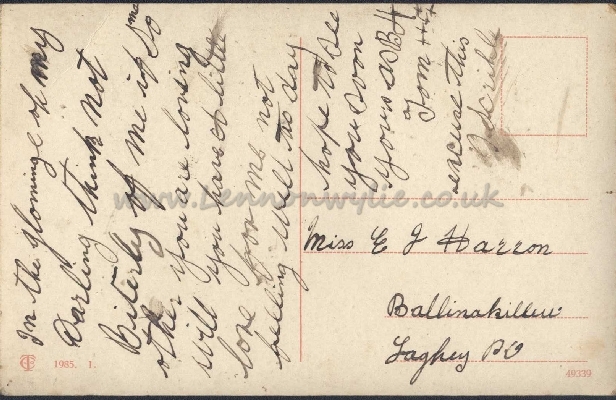 In the gloming o my
Darling think not
Biterly of me if so me
other you are loving
will you have a little
love for me not
felling well to day
hope to see
you soon
yours as B4
Tom
excuse this
scribble
Miss E J Harron
Ballinakillew
Laghey PO
1985. 1.
49339
www.Lennonwylie.co.uk